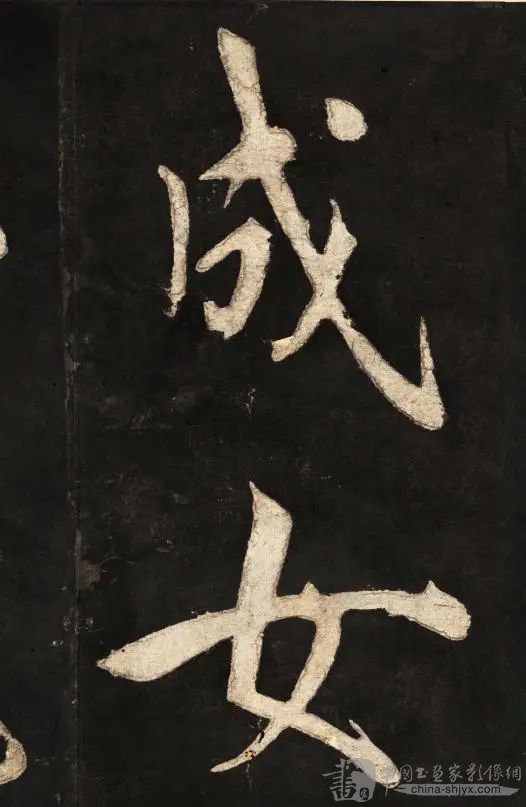 成女
中国书画家影像網
china-shjyx.com